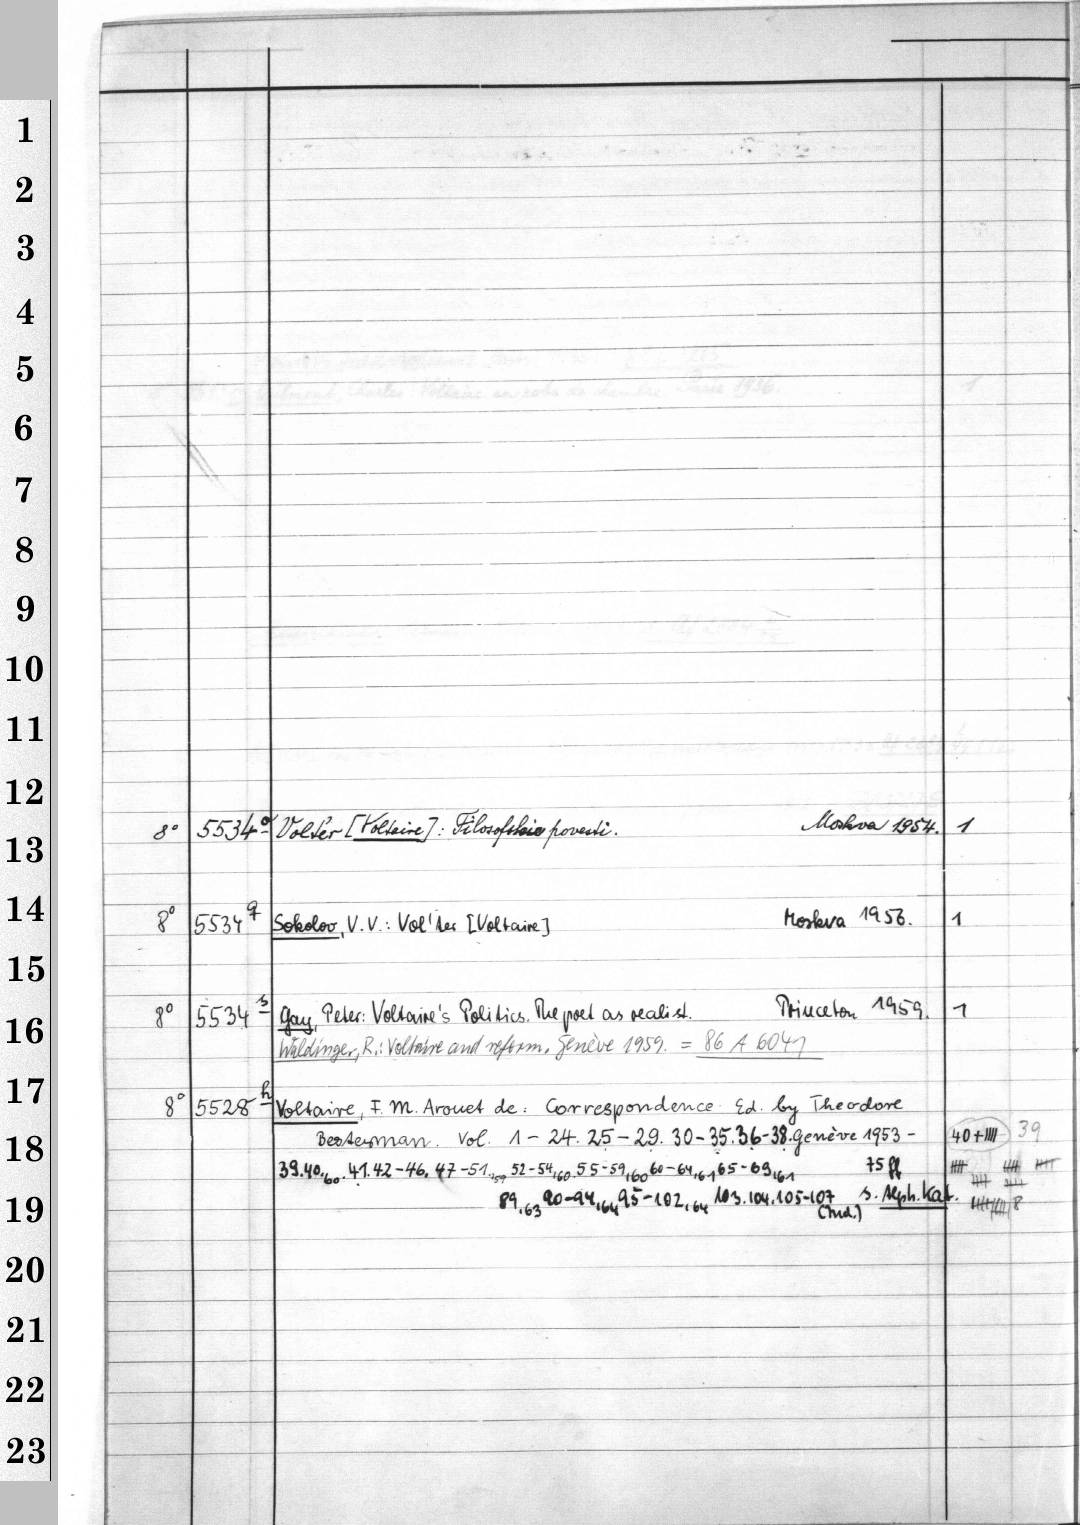 1
2
3
4
5
6
7
8
9
10
11
12
13
14
15
16
17
18
19
20
21
22
23
8° 5534 o Volter [Voltaire]: Filosofskie povesti. Moskva 1954. 1
8° 5534 q Sokolov, V.V.: Vol'ter [Voltaire] Moskva 1956. 1
8° 5534 s Gay, Peter: Voltaire's Politics. The poet as realist. Princeton 1959. 1
Waldinger, R.: Voltaire and reform. Genève 1959. = 86 A 6041
8° 5528 h Voltaire, F. M. Arouet de: Correspondence. Ed. by Theodore
Besterman. Vol. 1-24. 25-29. 30-35. 36-38. Genève 1953- 40+ 39
39.40,60. 41.42-46. 47-51.,59 52-54,60. 55-59,60 60-64,61 65-69,61 75 ff
89,63 90-94,64 95-102,64 103.104.105-107 s. Alph. Kat. 8
(Ind.)